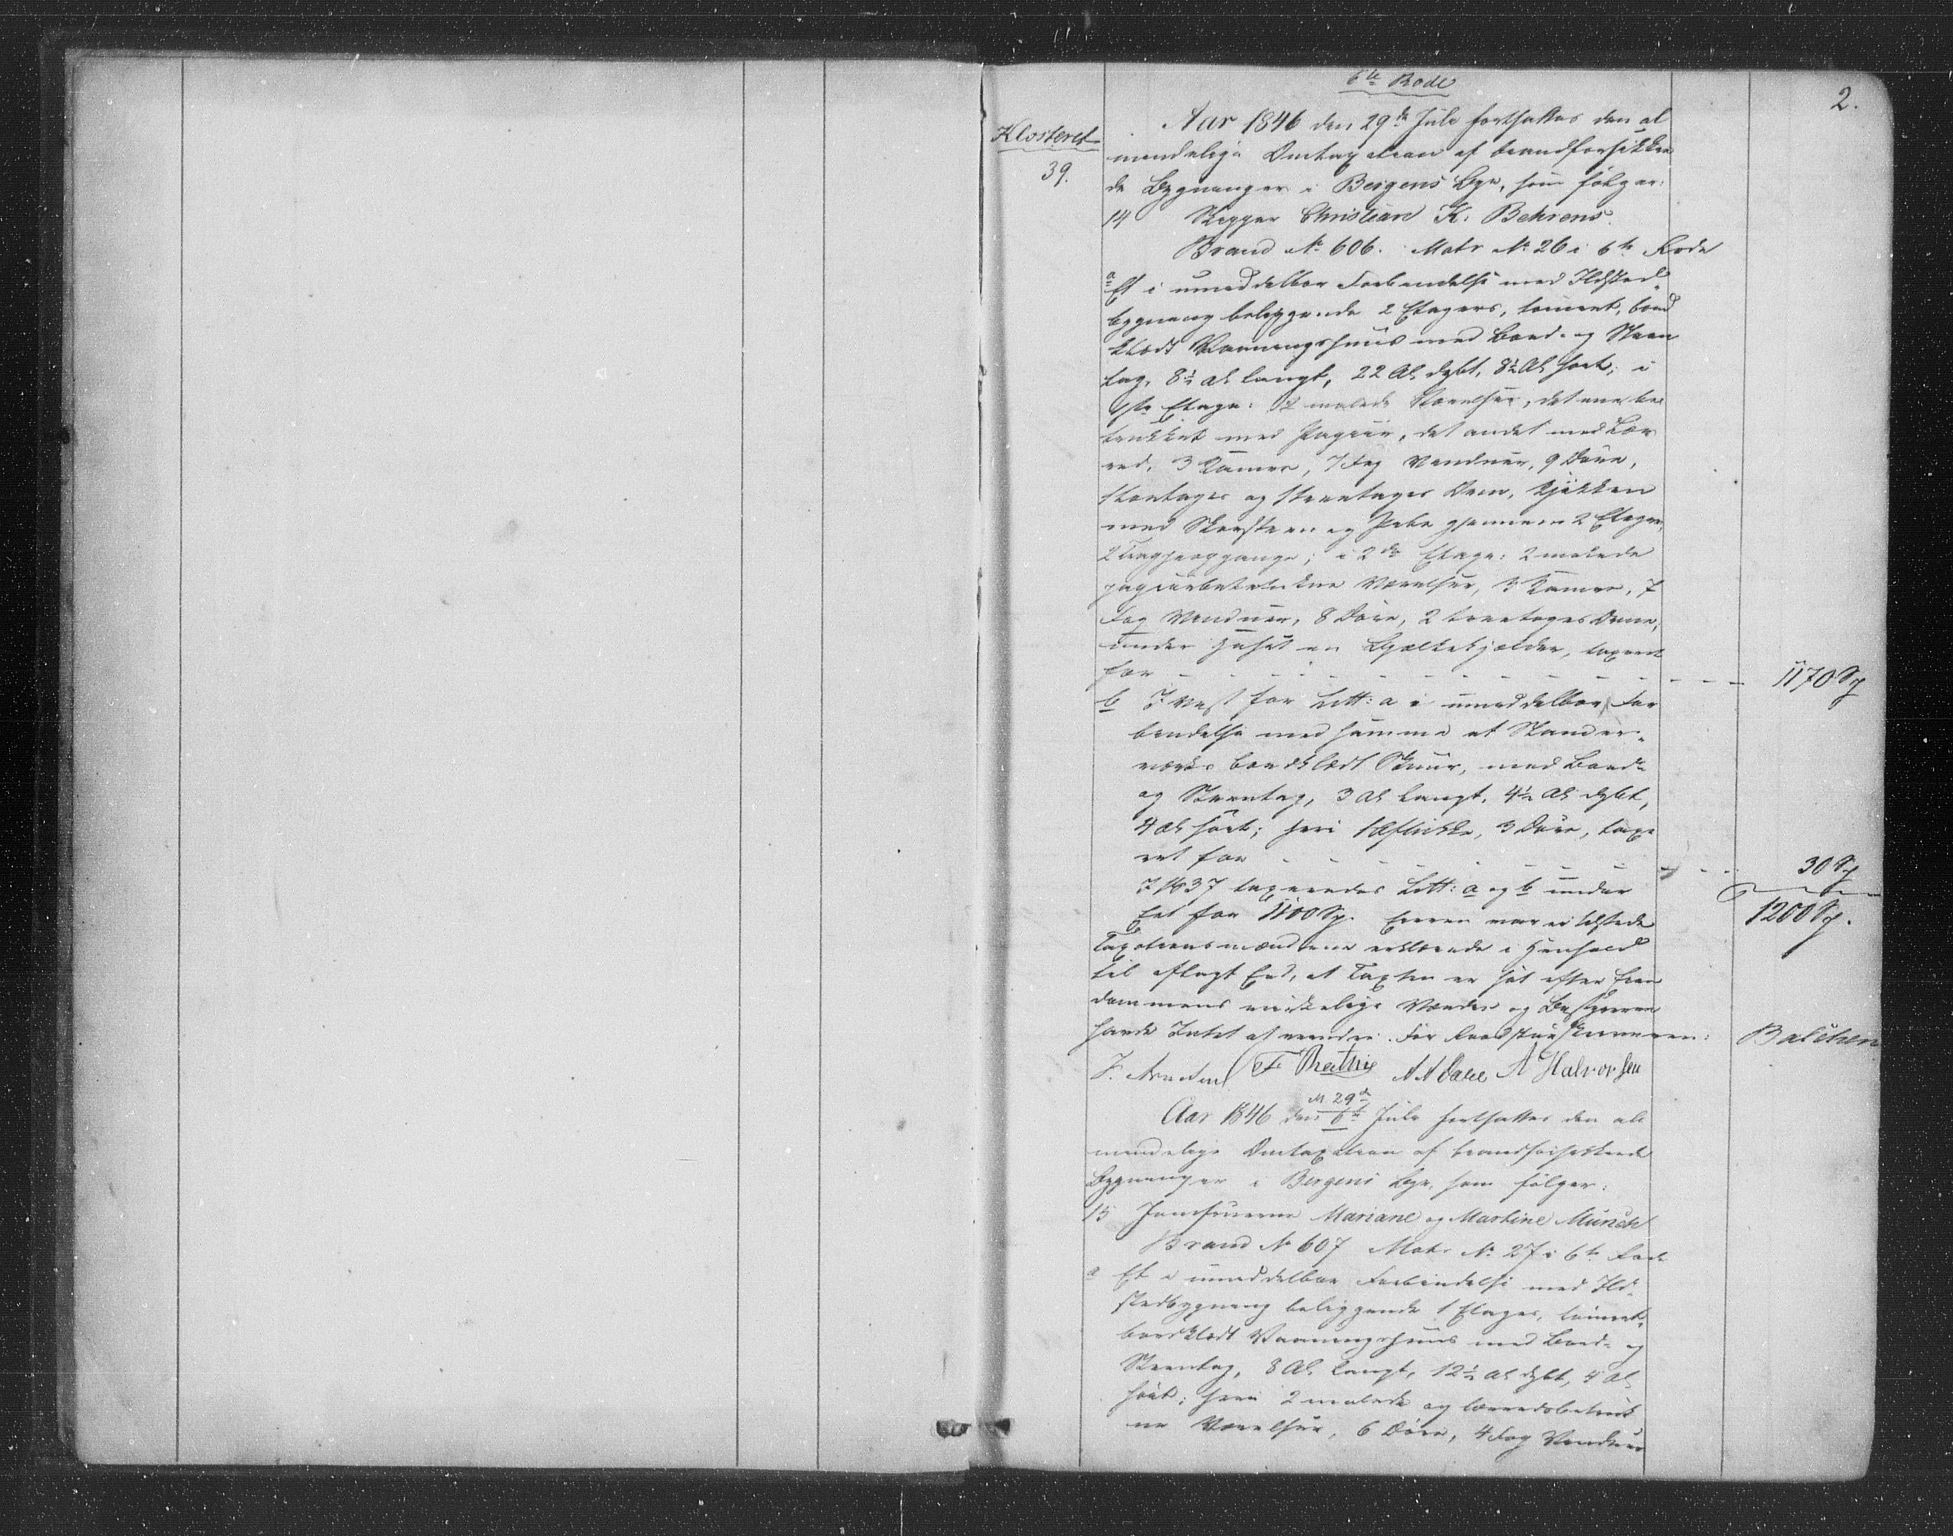 6te Rode
2.
Klosteret
39.
Aar 1846 den 29de Juli fortsattes den al
mindelige Omtaxation af brandforsikkre
de Bygninger i Bergens Bye, som følger:
14 Skipper Christian K. Behrens.
Brand No 606. Matr No 26 i 6te Rode
a Et i umiddelbar Forbindelse med Ildsted-
bygning beliggende 2 Etagers, tømret, bord
klædt Vaaningshuus med Bord- og Steen
tag, 8½ Al langt, 22 Al dybt, 8½ Al høit; i
1ste Etage: 2 malede Værelser, det ene be
trukket med Papiir, det andet med Lær
red, 3 Kamre, 7 Fag Vinduer, 9 Døre,
og treetages Ovn, Kjøkken
med Skorsteen og Pibe gjennem 2 Etager,
2 Trappeopgange; i 2den Etage: 2 malede
papiirbetrukne Værelser, 3 Kamre, 7
Fag Vinduer, 8 Døre, 2 treetages Ovne,
under Huset en Bjælkekjælder, taxeret
for - - - 1170 Sp
b I Vest for Litt: a i umiddelbar For
bindelse med samme et Stander-
værks bordklædt Skuur, med Bord-
og Steentag, 3 Al langt, 4½ Al dybt,
4 Al høit; heri 1 Aflukke, 3 Døre, taxe
ret for - - - 30 Sp
1200 Sp.
I 1837 taxeredes Litt: a og b under
Eet for 1100 Sp. Eieren var tilstede
Taxationsmændene erklærede i Henhold
til aflagt Eed, at Taxten er sat efter Eien
dommens virkelige Værdie og Bestyreren
havde Intet at erindre. For Raadstueskriveren: Balchen
F. Beithie A Halvorsen
M 29de
Aar 1846 den 6te Juli fortsattes den al
mindelige Omtaxation af brandforsikkrede
Bygninger i Bergens Bye, som følger:
15 Jomfruerne Mariane og Martine Münch
Brand No 607 Matr No 27 i 6te Rode
a Et i umiddelbar Forbindelse med Ild-
stedbygning beliggende 1 Etages, tømret,
bordklædt Vaaningshuus med Bord- og
Steentag, 8 Al. langt, 12½ Al dybt, 4 Al
høit; heri 2 malede og lærredsbetruk
ne Værelser, 6 Døre, 4 Fag Vinduer